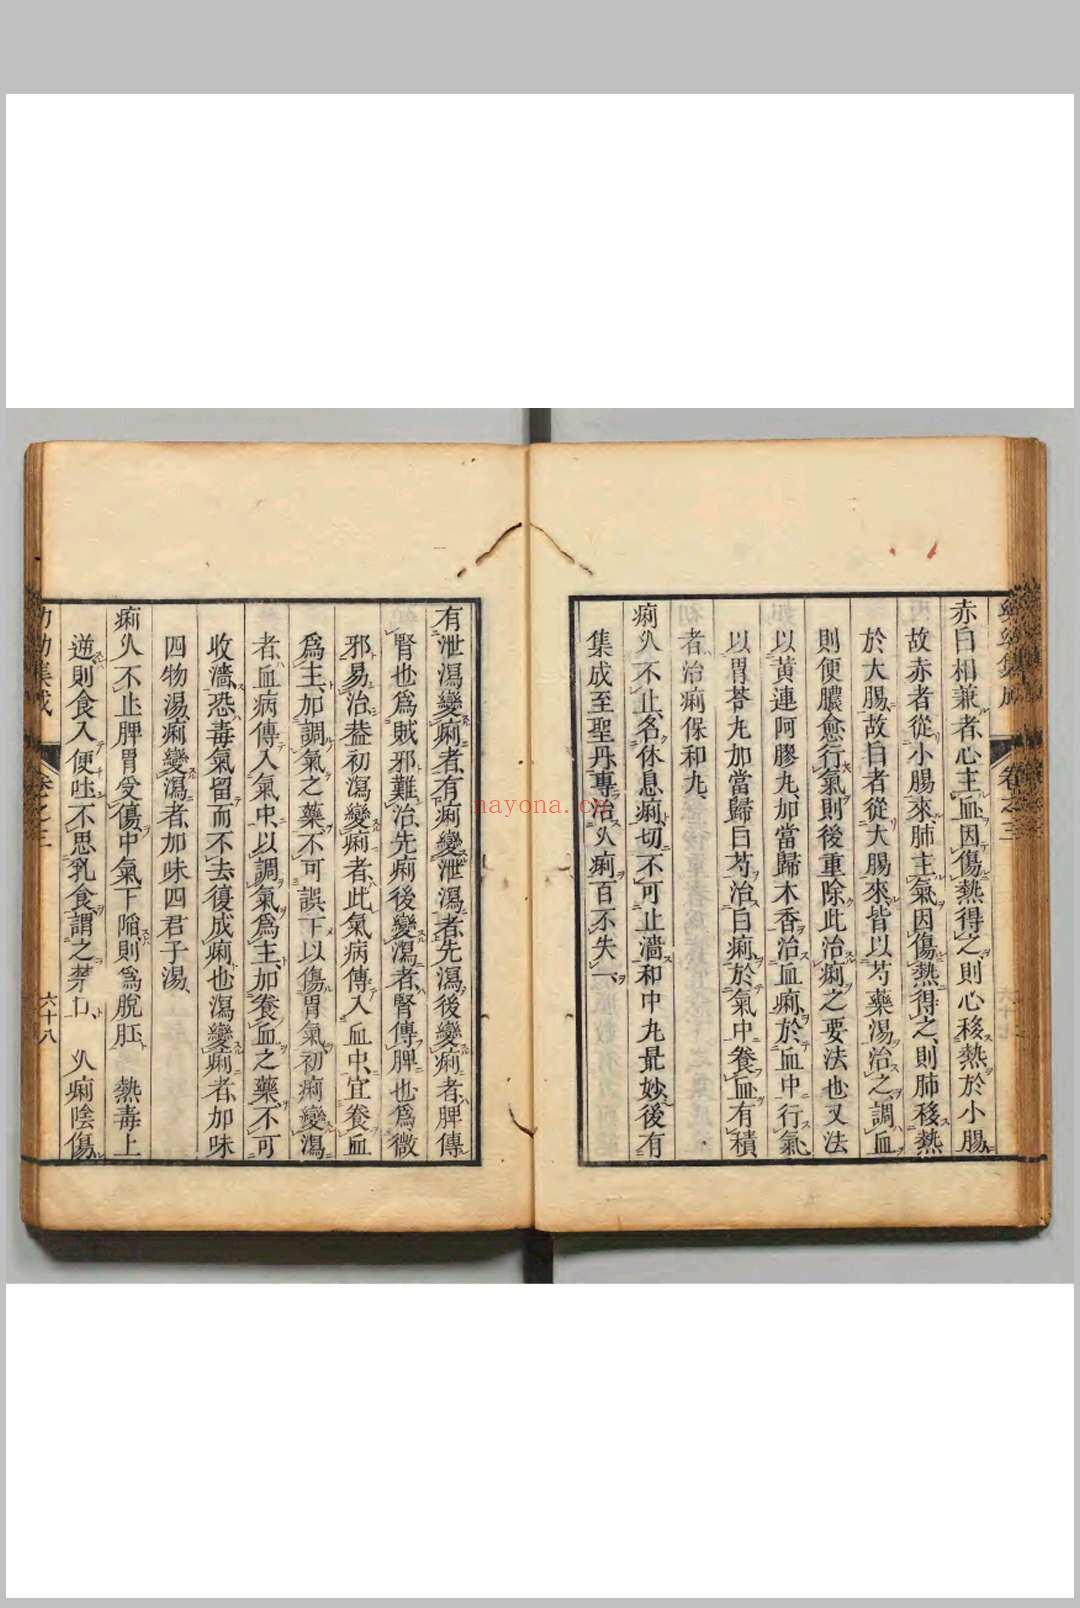 赤白相兼者心主血因傷熱得之則心移熱於小腸
故赤者從小腸來肺主氣因傷熱得之則肺移熱
於大腸故白者從大腸來皆以芍藥湯治之調血
則便膿愈行氣則後重除此治痢之要法也又法
以黃連阿膠丸加當歸木香治血痢於血中行氣
以胃苓丸加當歸白芍治白痢於氣中養血有積
者治痢保和丸
痢久不止名休息痢切不可止濇和中丸最妙後有
集成至聖丹專治久痢百不失一
有泄瀉變痢者有痢變泄瀉者先瀉後變痢者脾傳
腎也爲賊邪難治先痢後變瀉者腎傳脾也爲微
邪易治葢初瀉變痢者此氣病傳入血中宜養血
爲主加調氣之藥不可誤下以傷胃氣初痢變瀉
者血病傳入氣中以調氣爲主加養血之藥不可
收濇恐毒氣留而不去復成痢也瀉變痢者加味
四物湯痢變瀉者加味四君子湯
痢久不止脾胃受傷中氣下陷則爲脫肛 熱毒上
逆則食入便吐不思乳食謂之禁口 久痢陰傷
幼幼集成 卷之三 六十八
nayona.cn